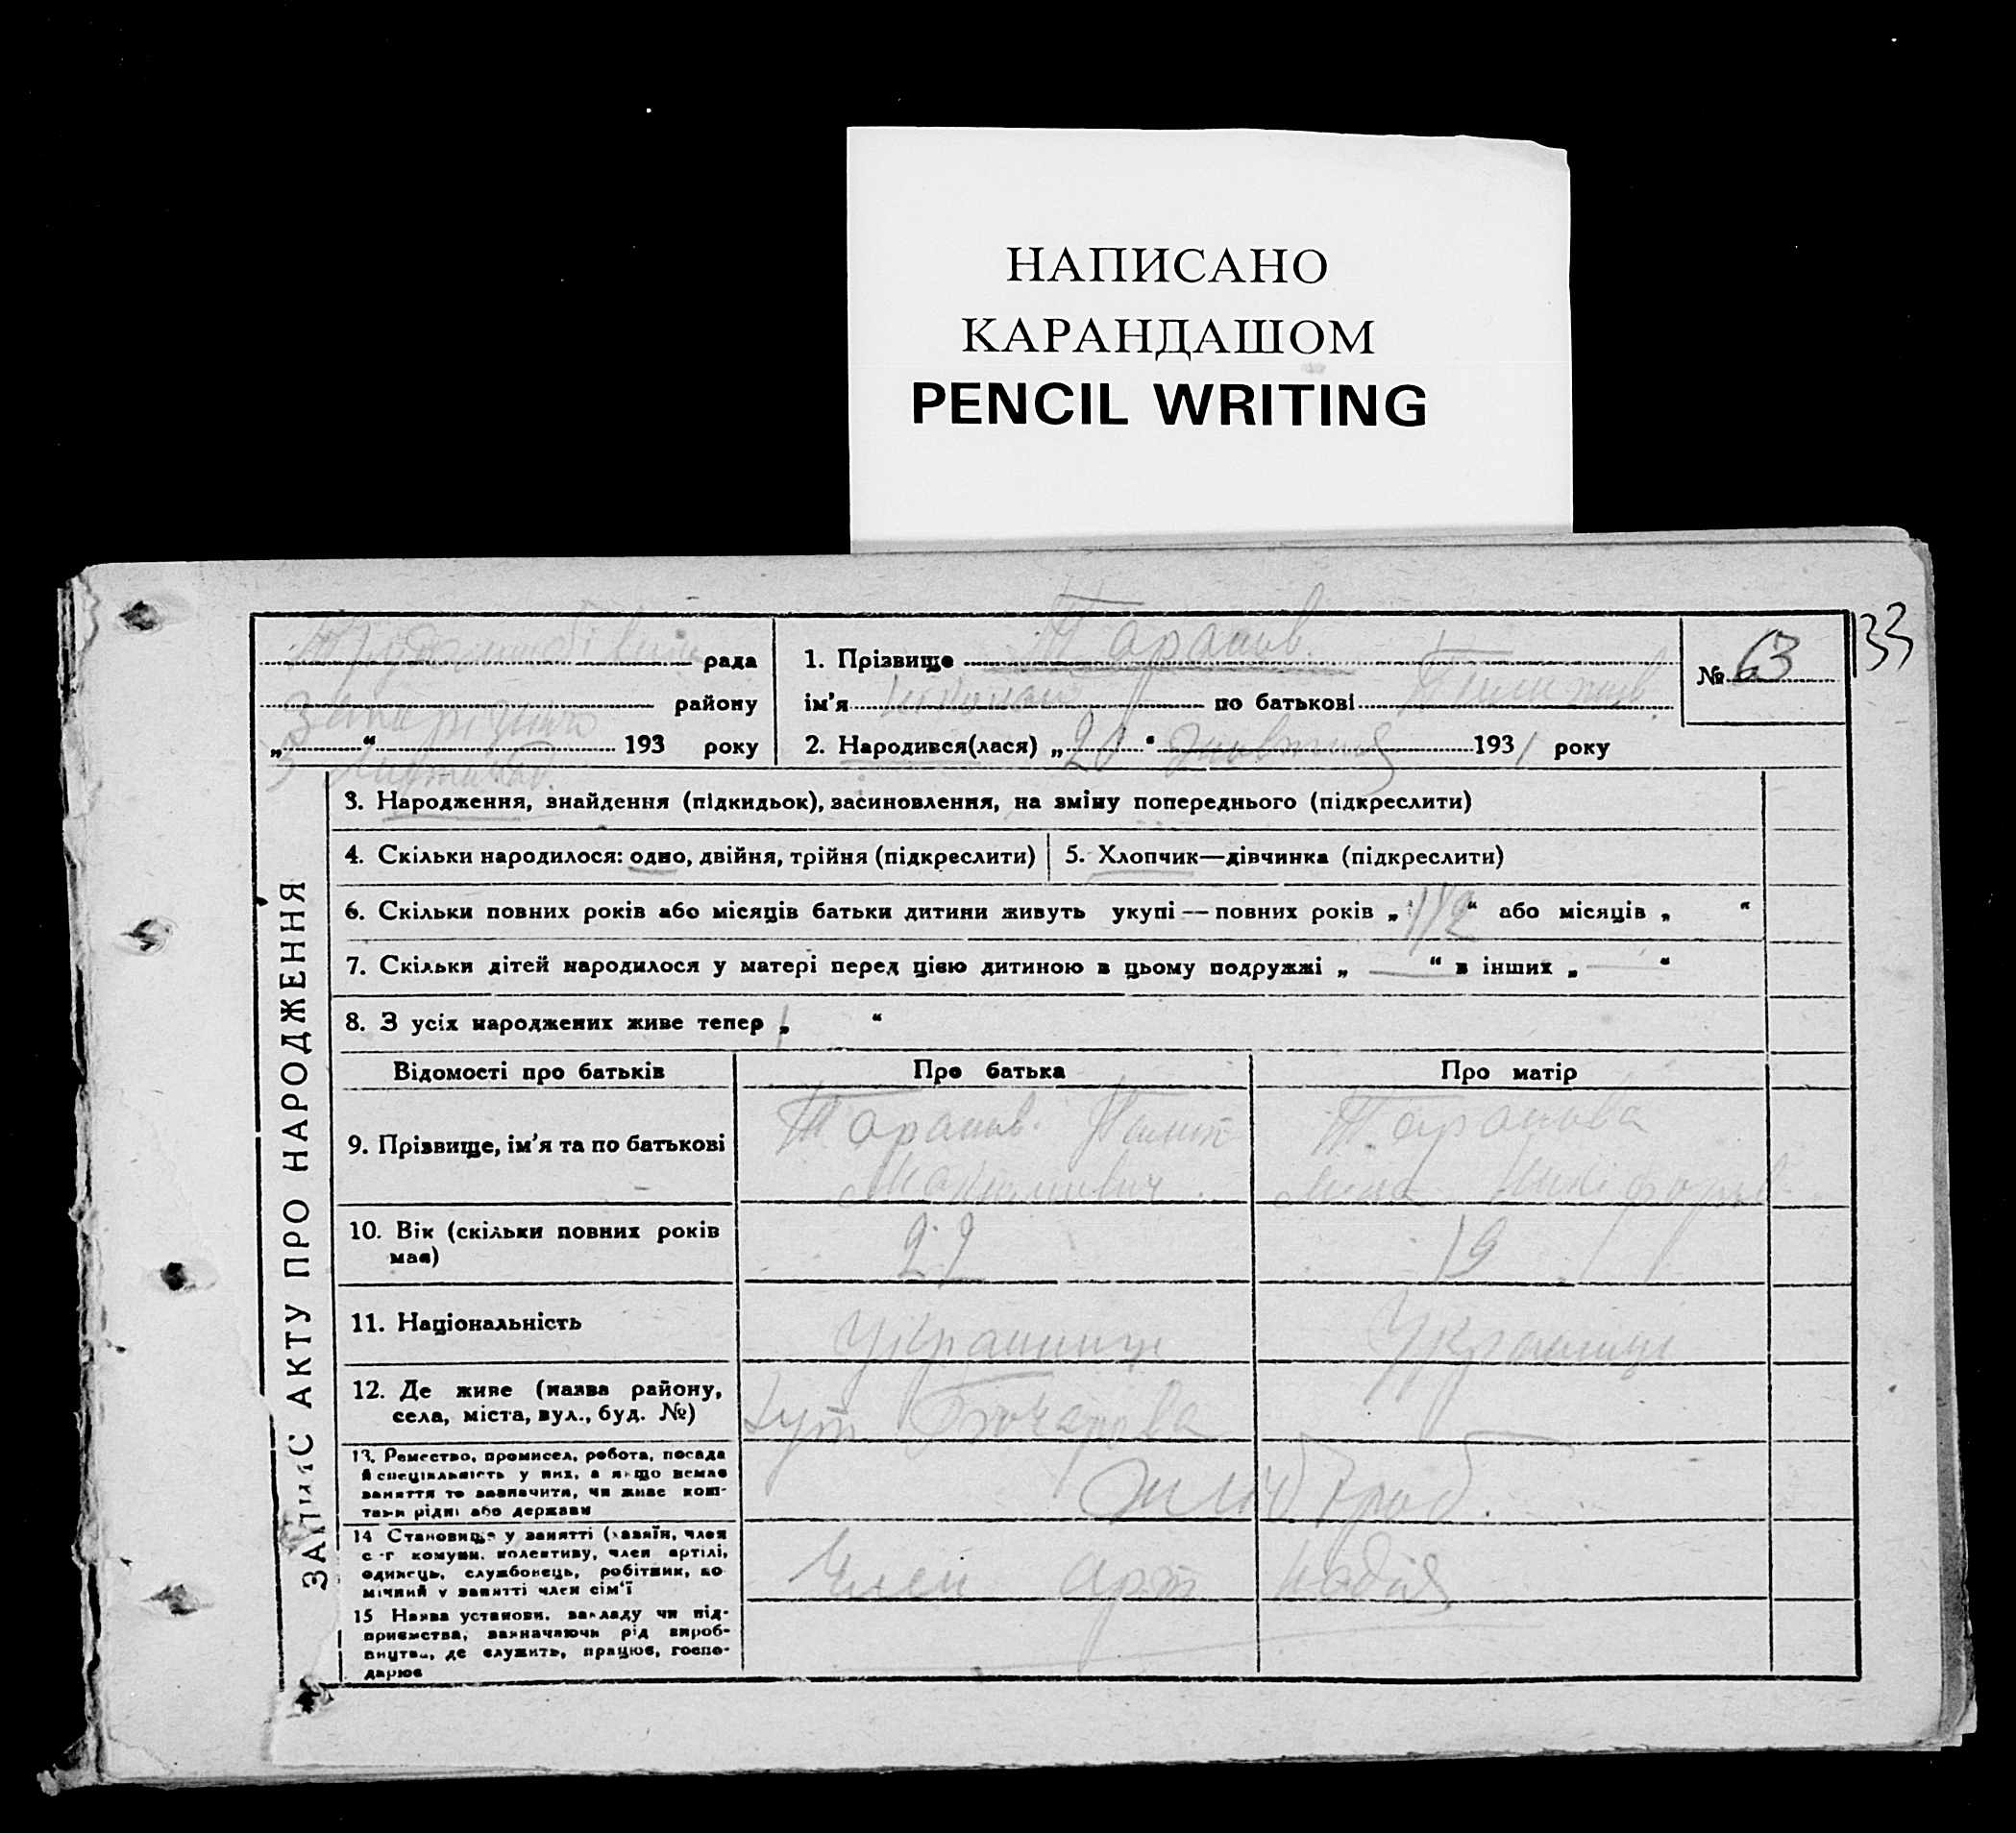 НАПИСАНО
КАРАНДАШОМ
PENCIL WRITING
рада
1. Прізвище Таранов.
№ 63
133
району
ім'я по батькові
„ “ 193 року
2. Народився(лася) „20“ жовтня 1931 року
ЗАПИС АКТУ ПРО НАРОДЖЕННЯ
3. Народження, знайдення (підкидьок), засиновлення, на зміну попереднього (підкреслити)
4. Скільки народилося: одно, двійня, трійня (підкреслити)
5. Хлопчик—дівчинка (підкреслити)
6. Скільки повних років або місяців батьки дитини живуть укупі — повних років „1 1/2“ або місяців „ “
7. Скільки дітей народилося у матері перед цією дитиною в цьому подружжі „ — “ в інших „ — “
8. З усіх народжених живе тепер „1 “
Відомості про батьків
Про батька
Про матір
9. Прізвище, ім'я та по батькові
Таранов
Таранова
10. Вік (скільки повних років
має)
27
19
11. Національність
12. Де живе (назва району,
села, міста, вул., буд. №)
Хут
13. Ремество, промисел, робота, посада
й спеціяльність у них, а якщо немає
заняття то зазначити, чи живе кош-
тами рідні або держави
Хлібороб.
14 Становище у занятті (хазяїн, член
с.-г комуни, колективу, член артілі,
одинець, службовець, робітник, по
мічний у занятті член сім'ї
Член арт Надія
15 Назва установи, закладу чи під-
приємства, зазначаючи рід вироб-
ництва, де служить, працює, госпо-
дарює